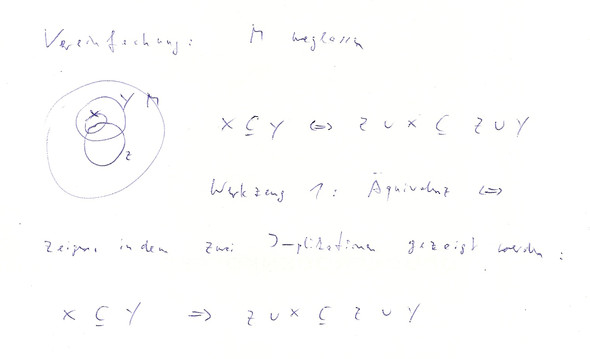 Vereinfachung: M weglassen
X Y M
Z
X ⊆ Y ⇔ Z ∪ X ⊆ Z ∪ Y
Werkzeug 1: Äquivalenz ⇔
zeigen, indem zwei Implikationen gezeigt werden:
X ⊆ Y ⇒ Z ∪ X ⊆ Z ∪ Y